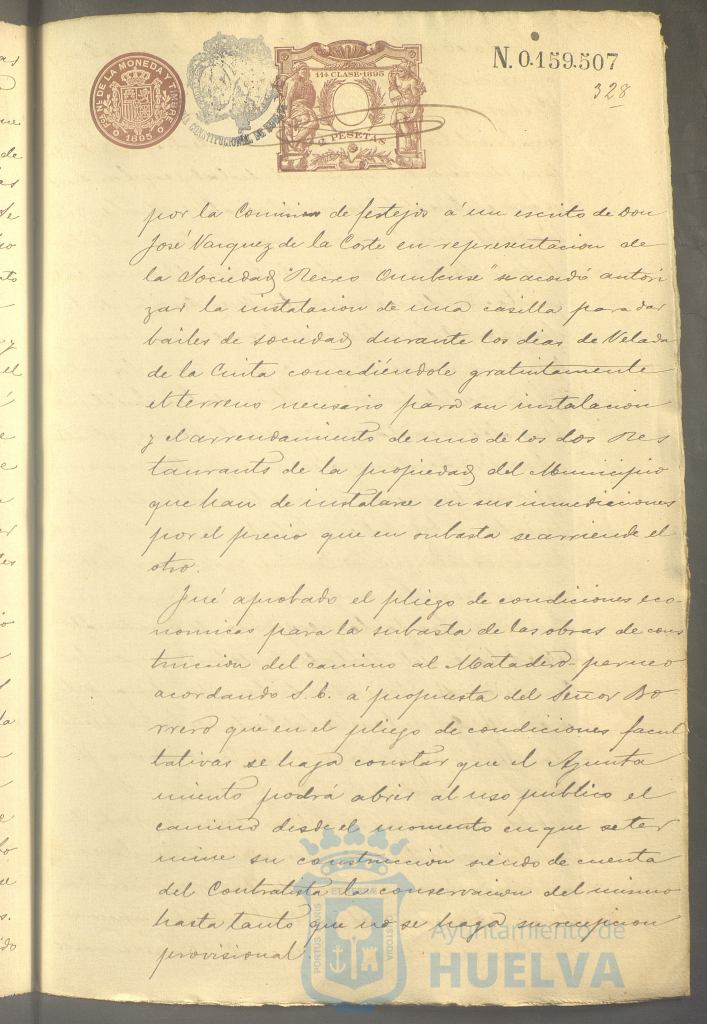 FAB. NAL. DE LA MONEDA Y TIMBRE
1895
CONSTITUCIONAL DE HUELVA
11ª CLASE-1895
2 PESETAS
N. 0.159.507
328
por la Comision de festejos á un escrito de Don
José Vazquez de la Corte en representacion de
la Sociedad "Recreo Onubense" se acordó autori
zar la instalacion de una casilla para dar
bailes de sociedad durante los dias de Velada
de la Cinta concediéndole gratuitamente
el terreno necesario para su instalacion
y el arrendamiento de uno de los dos Res
taurants de la propiedad del Municipio
que han de instalarse en sus inmediaciones
por el precio que en subasta se arriende el
otro.
Fué aprobado el pliego de condiciones eco-
nomicas para la subasta de las obras de cons
truccion del camino al Matadero-perneo
acordando S. E. á propuesta del Señor Bo-
rrero que en el pliego de condiciones facul
tativas se haga constar que el Ayunta
miento podrá abrir al uso público el
camino desde el momento en que se ter
mine su construccion siendo de cuenta
del Contratista la conservacion del mismo
hasta tanto que no se haga su recepcion
provisional.
PORTUS MARIS ET TERRÆ CUSTODIA
Ayuntamiento de
HUELVA